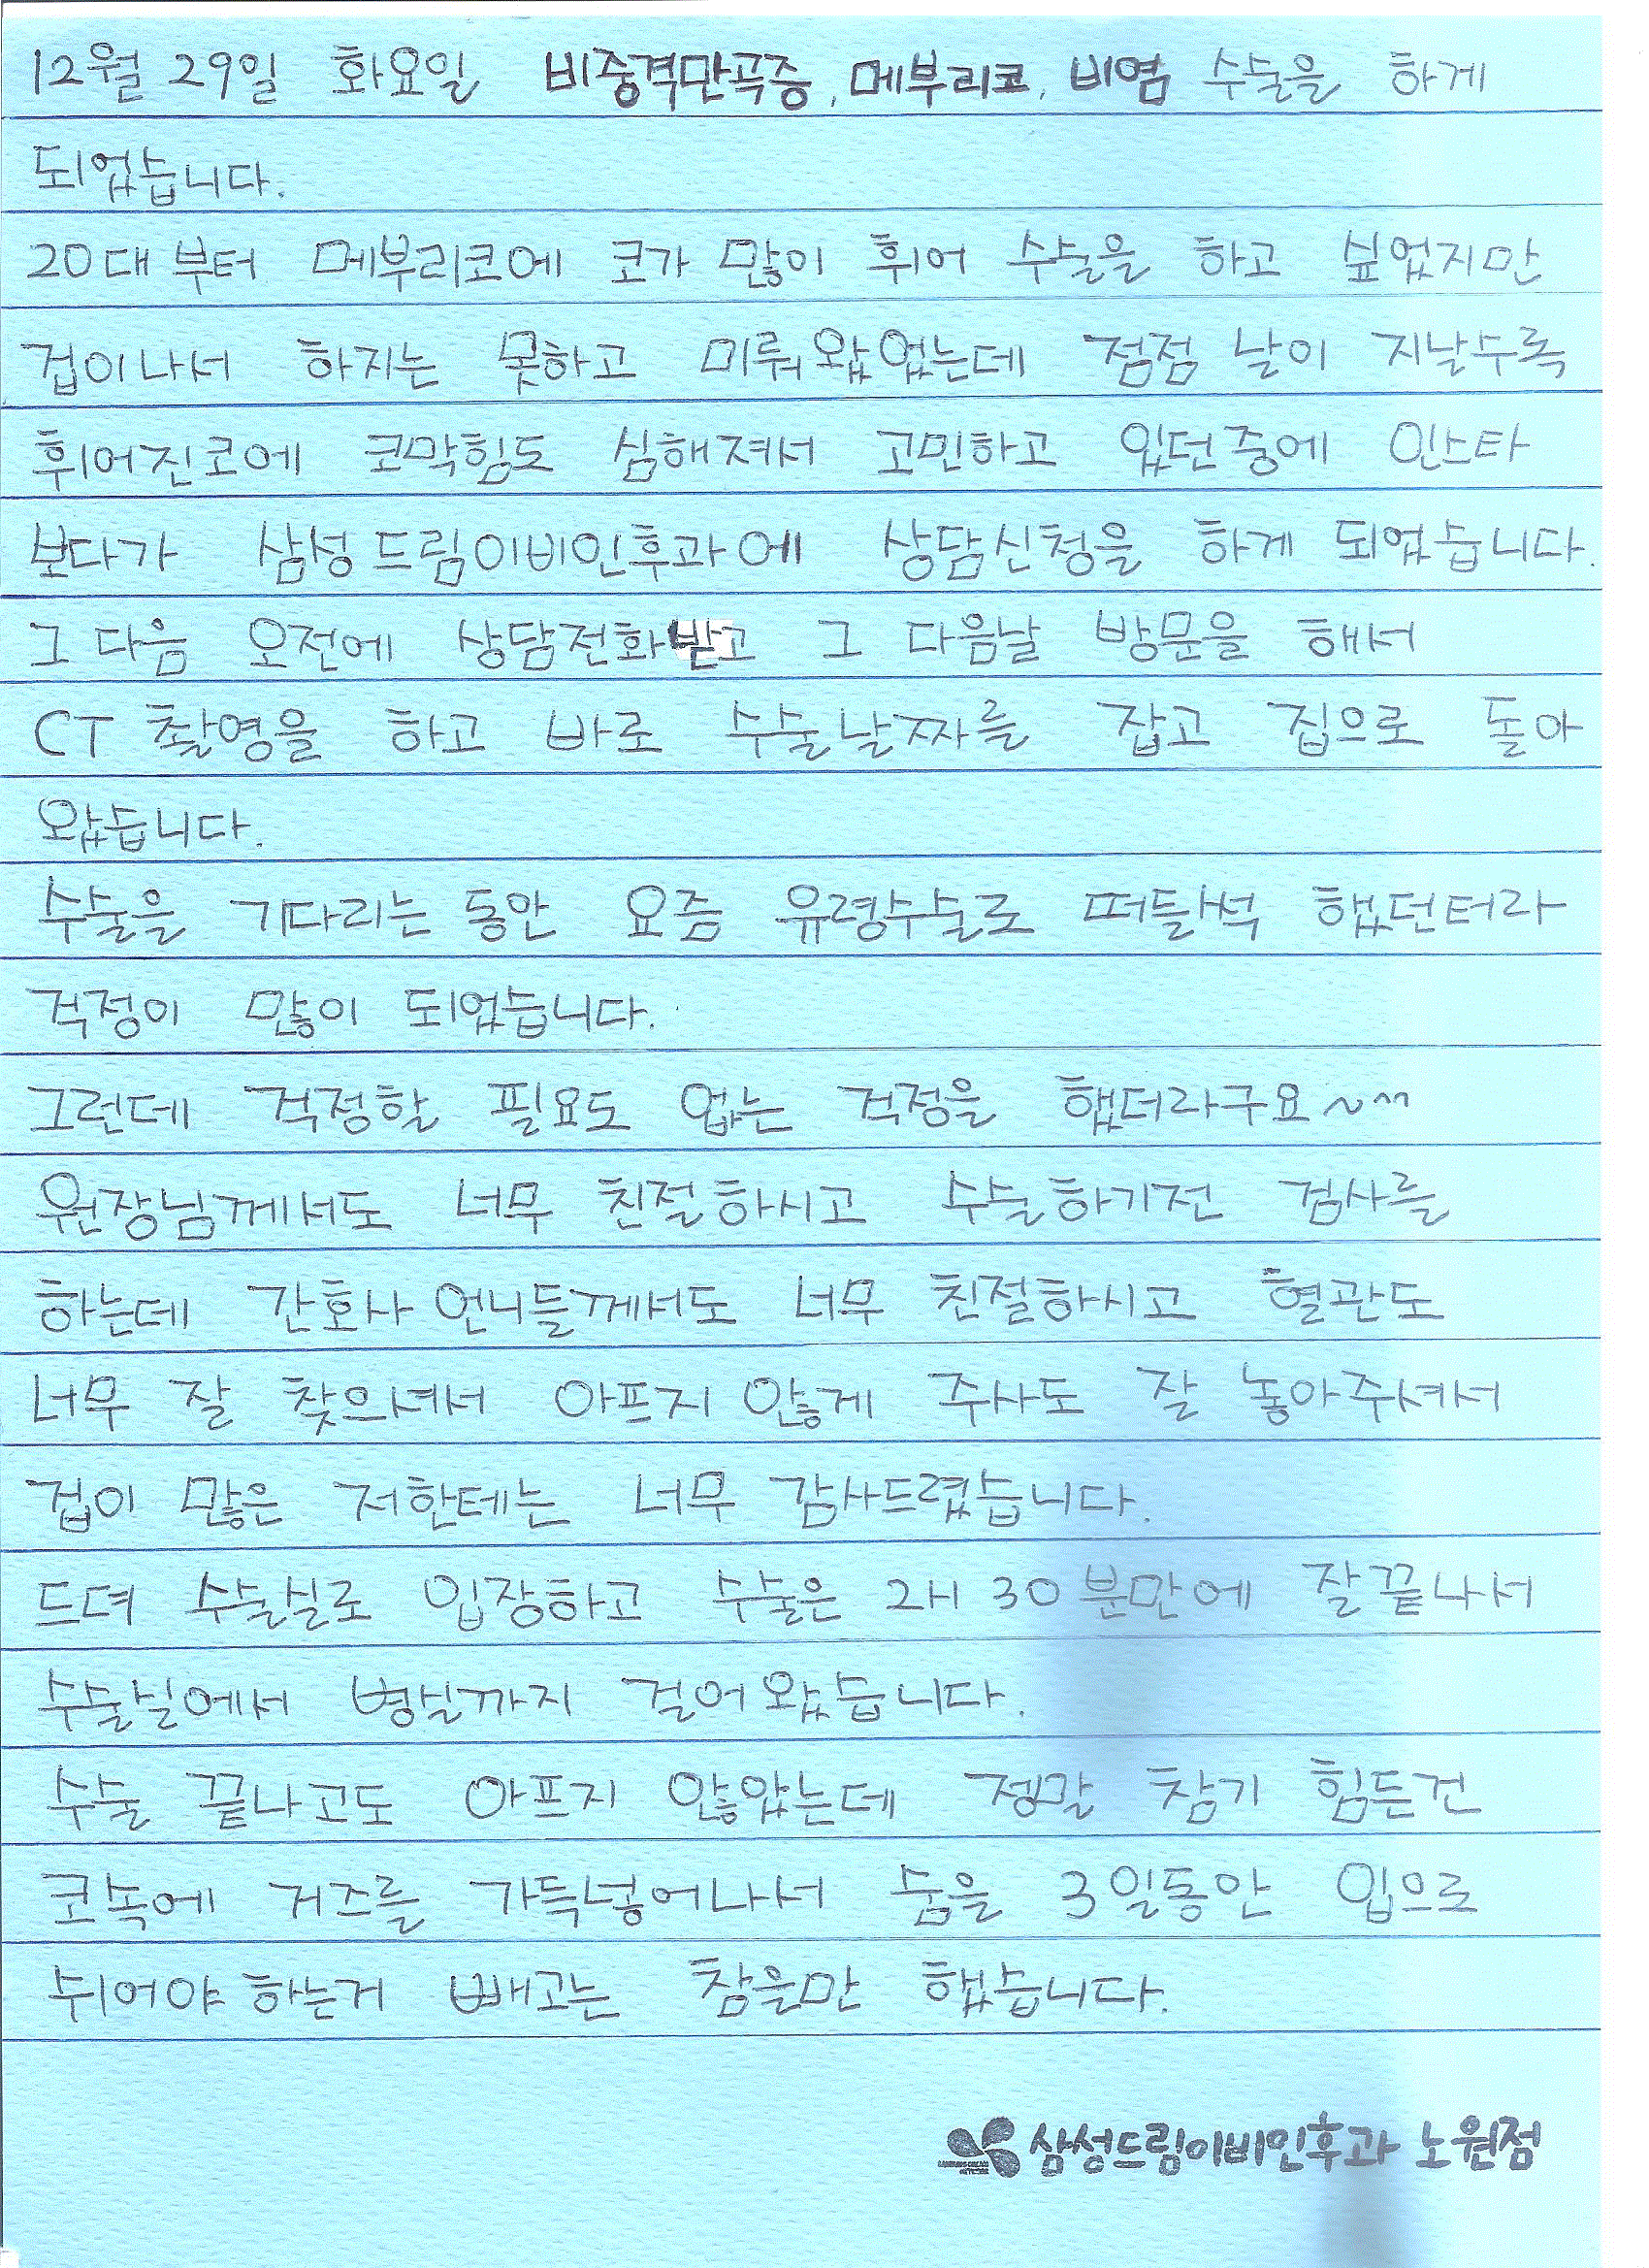 12월 29일 화요일 비중격만곡증, 메부리코, 비염 수술을 하게
되었습니다.
20대 부터 메부리코에 코가 많이 휘어 수술을 하고 싶었지만
겁이나서 하지는 못하고 미뤄왔었는데 점점 날이 지날수록
휘어진코에 코막힘도 심해져서 고민하고 있던중에 인스타
보다가 삼성드림이비인후과에 상담신청을 하게 되었습니다.
그 다음 오전에 상담전화받고 그 다음날 방문을 해서
CT 촬영을 하고 바로 수술날짜를 잡고 집으로 돌아
왔습니다.
수술을 기다리는 동안 요즘 유령수술로 떠들석 했던터라
걱정이 많이 되었습니다.
그런데 걱정할 필요도 없는 걱정을 했더라구요~^^
원장님께서도 너무 친절하시고 수술하기전 검사를
하는데 간호사 언니들께서도 너무 친절하시고 혈관도
너무 잘 찾으셔서 아프지 않게 주사도 잘 놓아주셔서
겁이 많은 저한테는 너무 감사드렸습니다.
드뎌 수술실로 입장하고 수술은 2시 30분만에 잘끝나서
수술실에서 병실까지 걸어왔습니다.
수술 끝나고도 아프지 않았는데 정말 참기 힘든건
코속에 거즈를 가득넣어나서 숨을 3일동안 입으로
쉬어야하는거 빼고는 참을만 했습니다.
삼성드림이비인후과 노원점